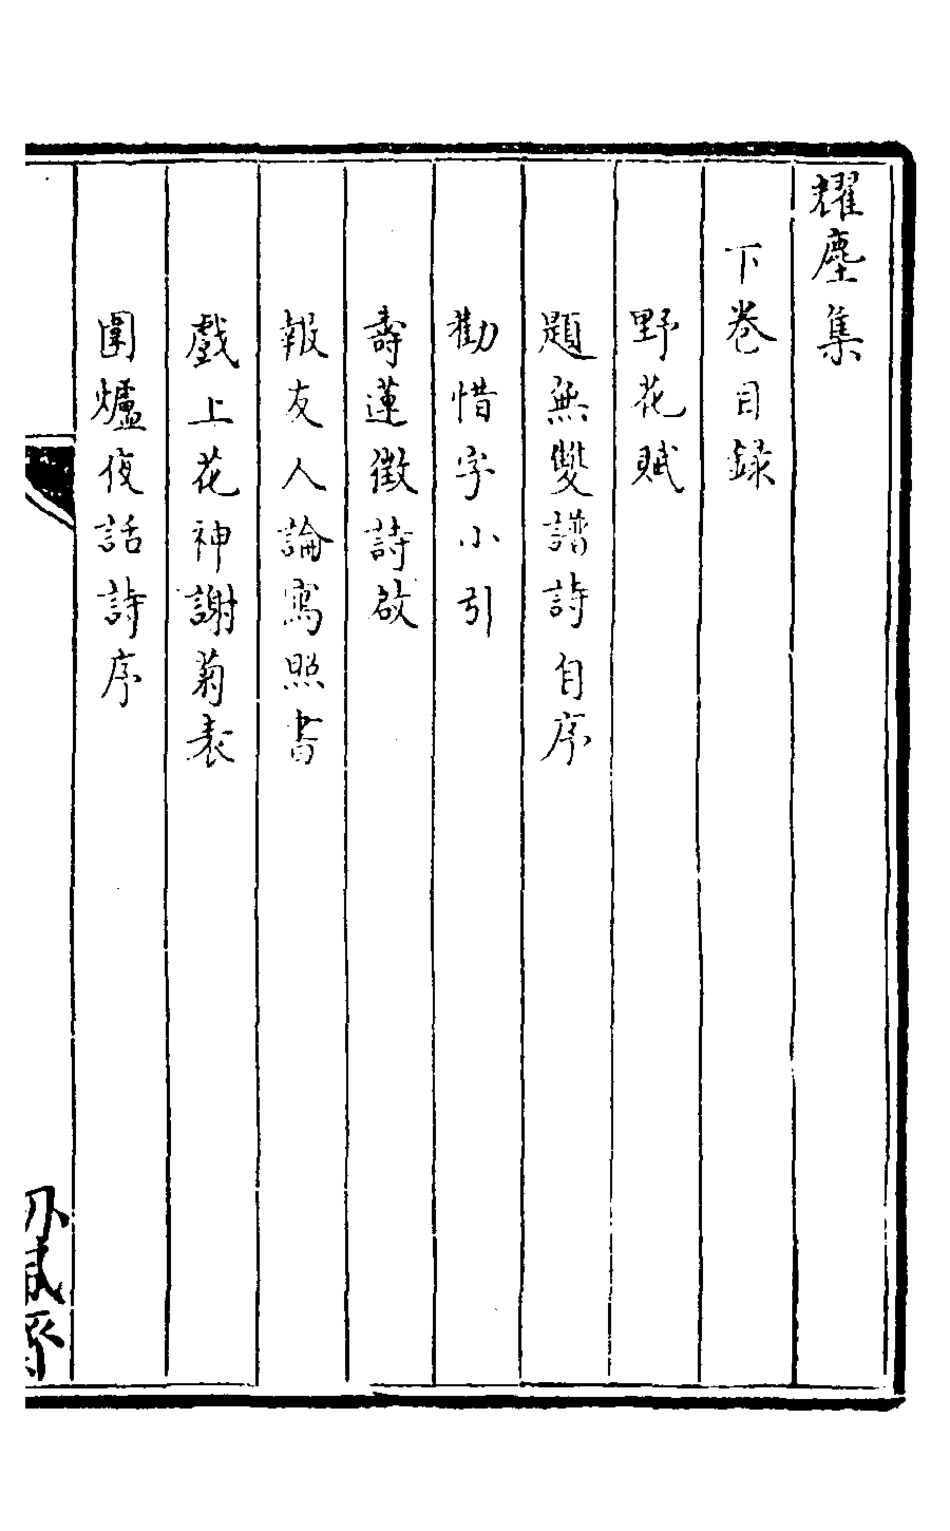 耀塵集
下卷目録
野花賦
題無雙譜詩自序
勸惜字小引
壽蓮徵詩啟
報友人論寫照書
戲上花神謝菊表
圍爐夜話詩序